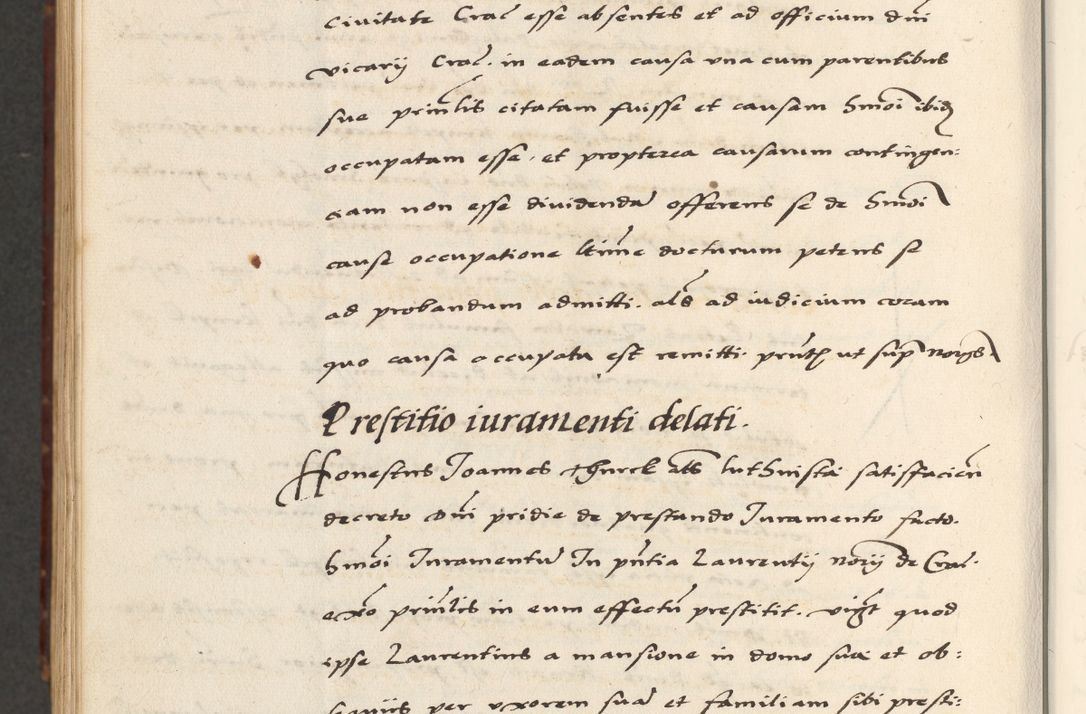 civitate Crac̃ esse absentes et ad officium dñi
vicarij Crac̃. in eadem causa vna cum parentibus
sue prin̄lis citatam fuisse et causam hm̃oi ibidẽ
occupatam esse, et propterea causarum contingen:
ciam non esse dividendã offerens se de hm̃oi
cause occupatione ltim̃e docturum petens se
ad probandum admitti. als̃ ad iudicium coram
quo causa occupata est remitti. pñtib ut sup̃ norijs
Prestitio iuramenti delati.
Honestus Joannes als̃ luthnista satisfacień
decreto dñi pridie de prestando Juramento facto.
hm̃oi Juramentũ In pñtia Laurentij norij de Crac̃.
prin̄lis in eum effectũ prestitit. vi3t quod
ipse Laurentius a mansione in domo sua et ob:
sequijs per vxorem suã et familiam sibi presti: